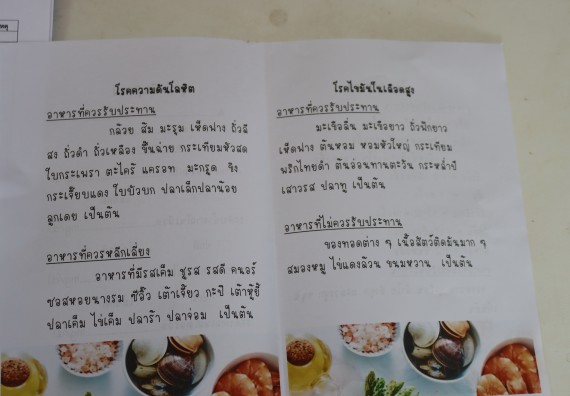 โรคความดันโลหิต
อาหารที่ควรรับประทาน
กล้วย ส้ม มะรุม เห็ดฟาง ถั่วลิ
สง ถั่วดำ ถั่วเหลือง ขึ้นฉ่าย กระเทียมหัวสด
ใบกระเพรา ตะไคร้ แครอท มะกรูด ขิง
กระเจี๊ยบแดง ใบบัวบก ปลาเล็กปลาน้อย
ลูกเดย เป็นต้น
อาหารที่ควรหลีกเลี่ยง
อาหารที่มีรสเค็ม ชูรส รสดี คนอร์
ซอสหอยนางรม ซีอิ๊ว เต้าเจี้ยว กะปิ เต้าหู้ยี้
ปลาเค็ม ไข่เค็ม ปลาร้า ปลาจ่อม เป็นต้น
โรคไขมันในเลือดสูง
อาหารที่ควรรับประทาน
มะเขือสั้น มะเขือยาว ถั่วฝักยาว
เห็ดฟาง ต้นหอม หอมหัวใหญ่ กระเทียม
พริกไทยดำ ต้นอ่อนทานตะวัน กระหล่ำปี
เสาวรส ปลาทู เป็นต้น
อาหารที่ไม่ควรรับประทาน
ของทอดต่าง ๆ เนื้อสัตว์ติดมันมาก ๆ
สมองหมู ไข่แดงล้วน ขนมหวาน เป็นต้น